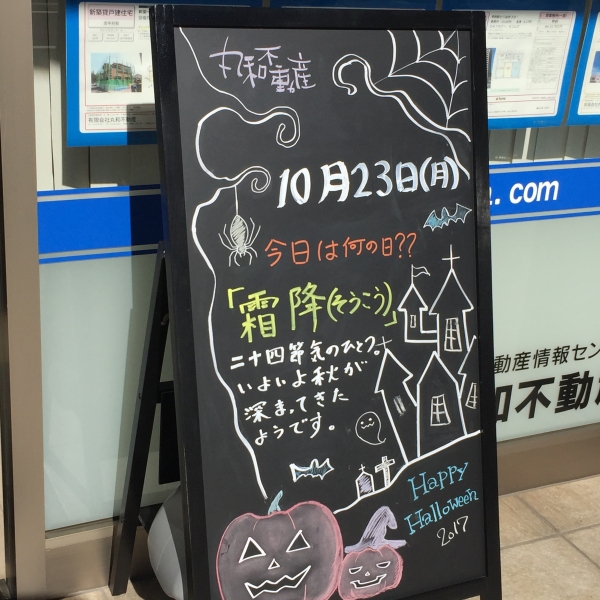 丸和不動産
10月23日(月)
今日は何の日??
「霜降(そうこう)」
二十四節気のひとつ。
いよいよ秋が
深まってきた
ようです。
Happy
Halloween
2017
新築貸戸建住宅
有限会社丸和不動産
. com
動産情報セン
和不動